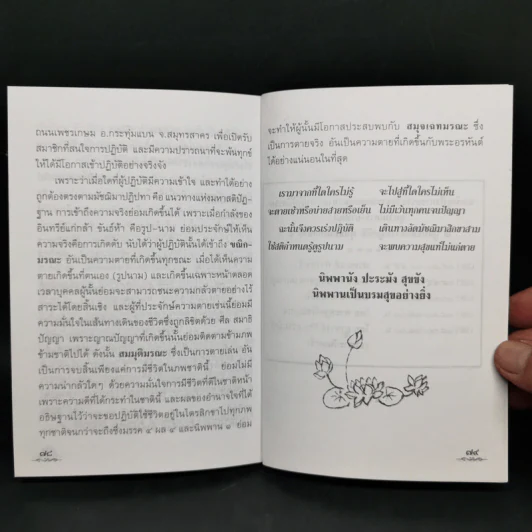 ถนนเพชรเกษม อ.กระทุ่มแบน จ.สมุทรสาคร เพื่อเปิดรับ
สมาชิกที่สนใจการปฏิบัติ และมีความปรารถนาที่จะพ้นทุกข์
ให้ได้มีโอกาสเข้าปฏิบัติอย่างจริงจัง
เพราะว่าเมื่อใดที่ผู้ปฏิบัติมีความเข้าใจ และทำได้อย่าง
ถูกต้องตรงตามมัชฌิมาปฏิปทา คือ แนวทางแห่งมหาสติปัฏ-
ฐาน การเข้าถึงความจริงย่อมเกิดขึ้นได้ เพราะเมื่อกำลังของ
อินทรีย์แก่กล้า ขันธ์ห้า คือรูป-นาม ย่อมประจักษ์ให้เห็น
ความจริงคือการเกิดดับ นับได้ว่าผู้ปฏิบัตินั้นได้เข้าถึง ขณิก-
มรณะ อันเป็นความตายที่เกิดขึ้นทุกขณะ เมื่อได้เห็นความ
ตายเกิดขึ้นที่ตนเอง (รูปนาม) และเกิดขึ้นเฉพาะหน้าตลอด
เวลาบุคคลผู้นั้นย่อมจะสามารถชนะความกลัวตายอย่างไร้
สาระได้โดยสิ้นเชิง และผู้ที่ประจักษ์ความตายเช่นนี้ย่อมมี
ความมั่นใจในเส้นทางเดินของชีวิตซึ่งถูกลิขิตด้วย ศีล สมาธิ
ปัญญา เพราะญาณปัญญาที่เกิดขึ้นนั้นย่อมติดตามข้ามภพ
ข้ามชาติไปได้ ดังนั้น สมมุติมรณะ ซึ่งเป็นการตายเล่น อัน
เป็นการจบสิ้นเพียงแค่การมีชีวิตในภพชาตินี้ ย่อมไม่มี
ความน่ากลัวใดๆ ด้วยความมั่นใจการมีชีวิตที่ดีในชาติหน้า
เพราะความดีที่ได้กระทำในชาตินี้ และผลของอำนาจใจที่ได้
อธิษฐานไว้ว่าจะขอปฏิบัติใช้ชีวิตอยู่ในไตรสิกขาไปทุกภพ
ทุกชาติจนกว่าจะถึงซึ่งมรรค ๔ ผล ๔ และนิพพาน ๑ ย่อม
๗๘
จะทำให้ผู้นั้นมีโอกาสประสบพบกับ สมุจเฉทมรณะ ซึ่ง
เป็นการตายจริง อันเป็นความตายที่เกิดขึ้นกับพระอรหันต์
ได้อย่างแน่นอนในที่สุด
เรามาจากที่ใดใครไม่รู้ จะไปสู่ที่ใดใครไม่เห็น
จะตายเช้าหรือบ่ายสายหรือเย็น ไม่มีเว้นทุกคนจนปัญญา
จะนั้นจึงควรเร่งปฏิบัติ เดินทางลัดมัชฌิมาสิกขาสาม
ใช้สติกำหนดรู้ดูรูปนาม จะพบความสุขที่ไม่แก่ตาย
นิพพานัง ปะระมัง สุขขัง
นิพพานเป็นบรมสุขอย่างยิ่ง
๗๙